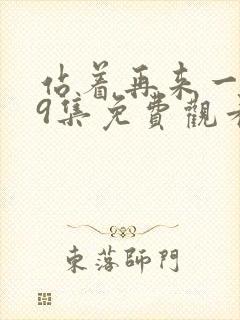 佔着再来一
9集免費觀看
東落師門